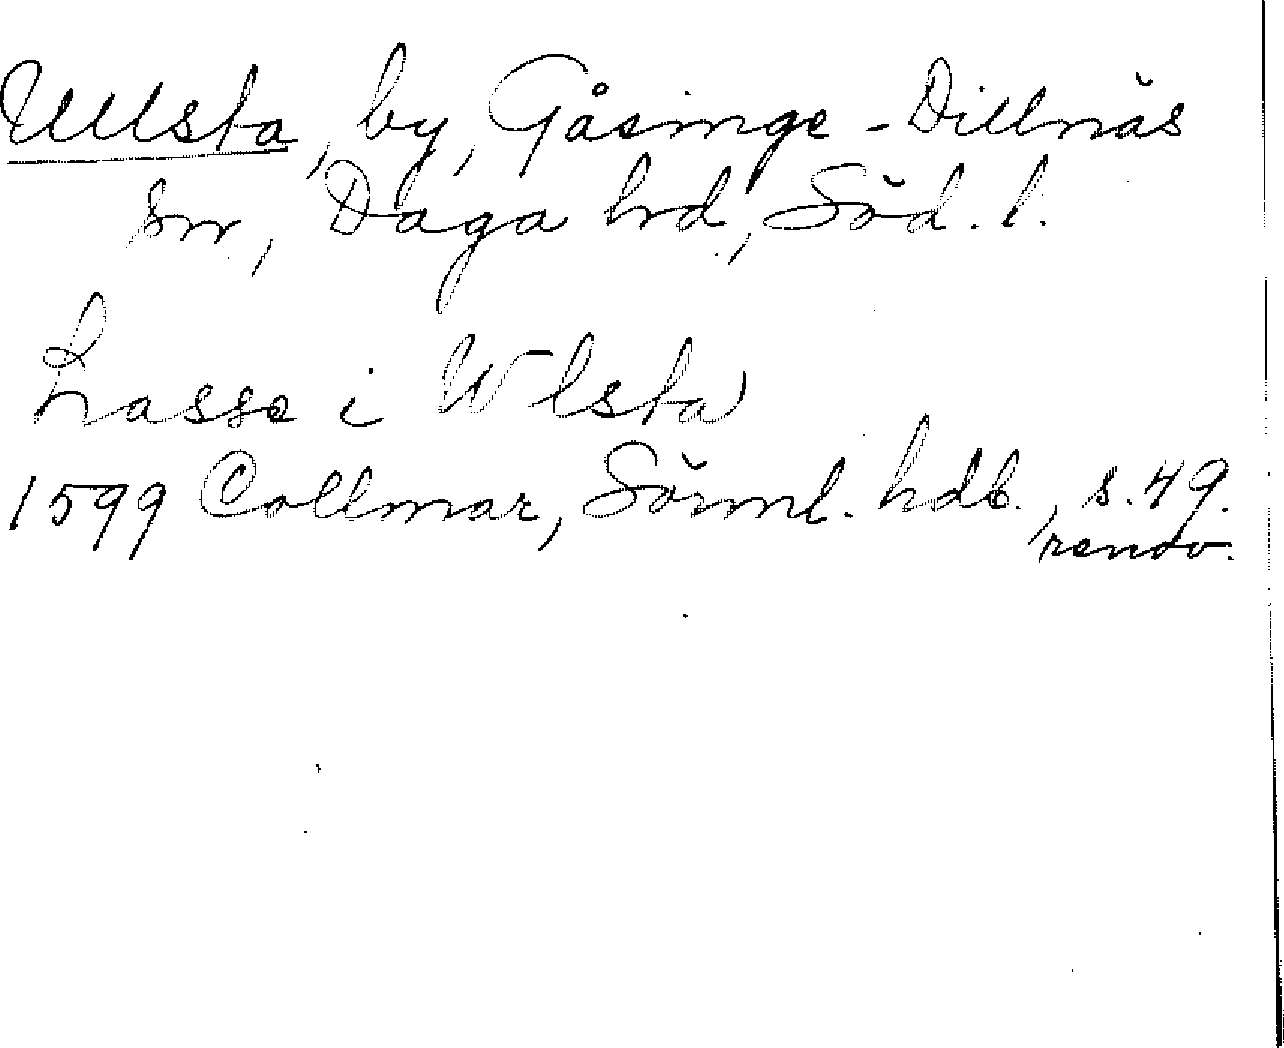 Ullsta, by, Gåsinge-Dillnäs
sn, Daga hrd, Söd. l.
Lasse i Wlsta
1599 Collmar, Sörml. hdb., s. 49.
renov.